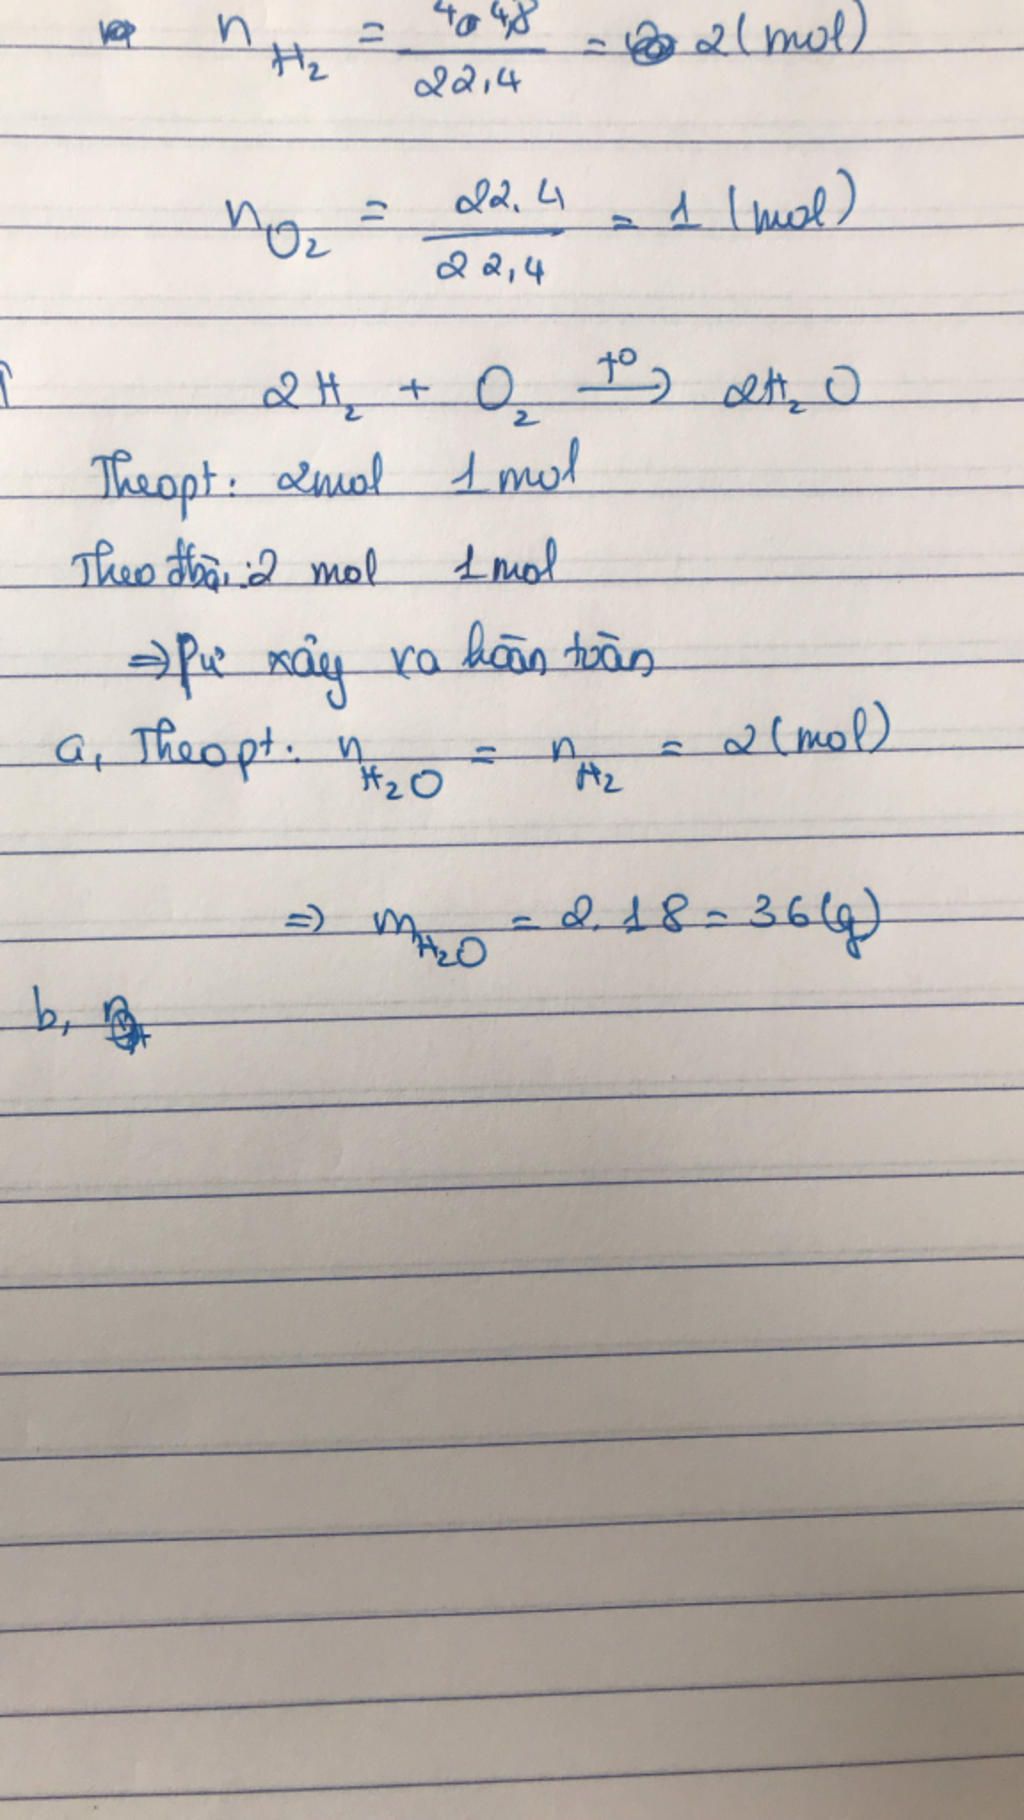 n H₂ = 44,8 / 22,4 = 2 (mol)
n O₂ = 22,4 / 22,4 = 1 (mol)
2H₂ + O₂ →(t°) 2H₂O
Theo pt: 2mol 1mol
Theo đbài: 2 mol 1mol
⇒ Pư xảy ra hoàn toàn
a, Theo pt: n H₂O = n H₂ = 2 (mol)
⇒ m H₂O = 2.18 = 36 (g)
b,